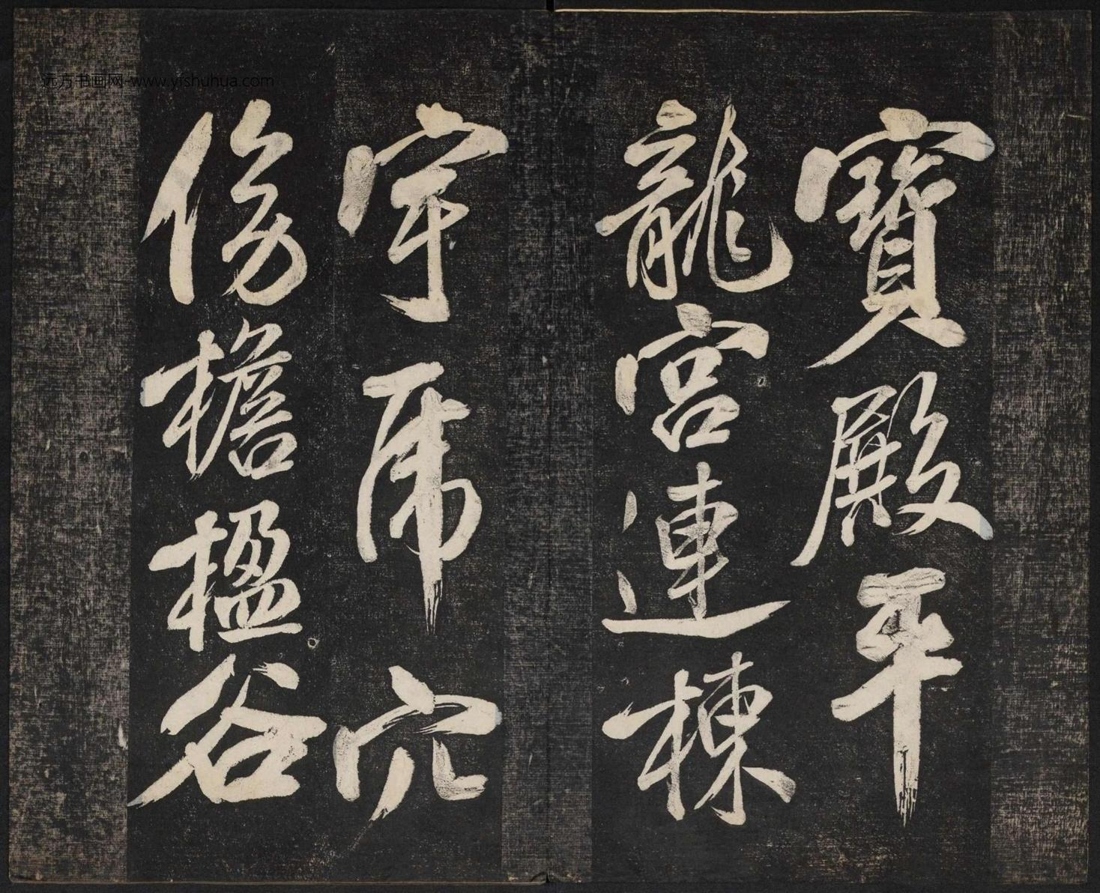 远方书画网-www.yfshuhua.com
寶殿平
龍宮連棟
宇虎穴
傍檐楹谷